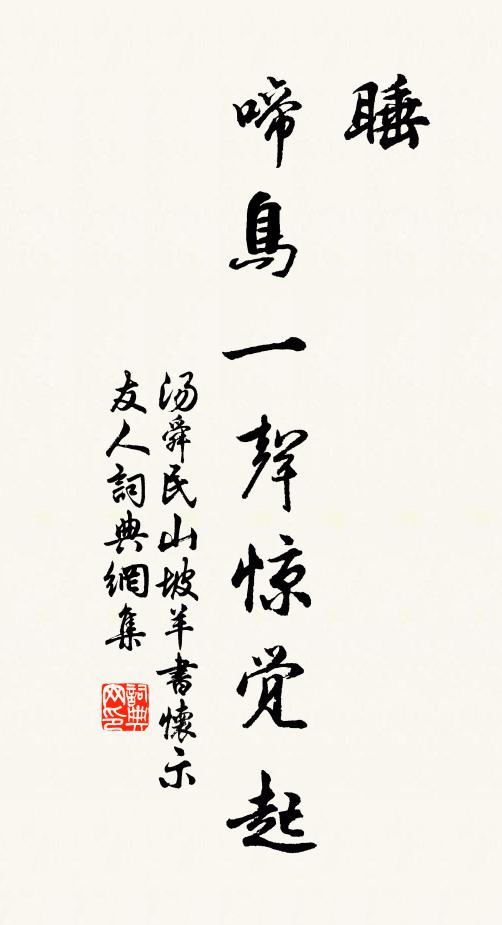 睡
啼鳥一聲惊觉起
汤舜民山坡羊書懷示
友人詞典網集
詞典
网印